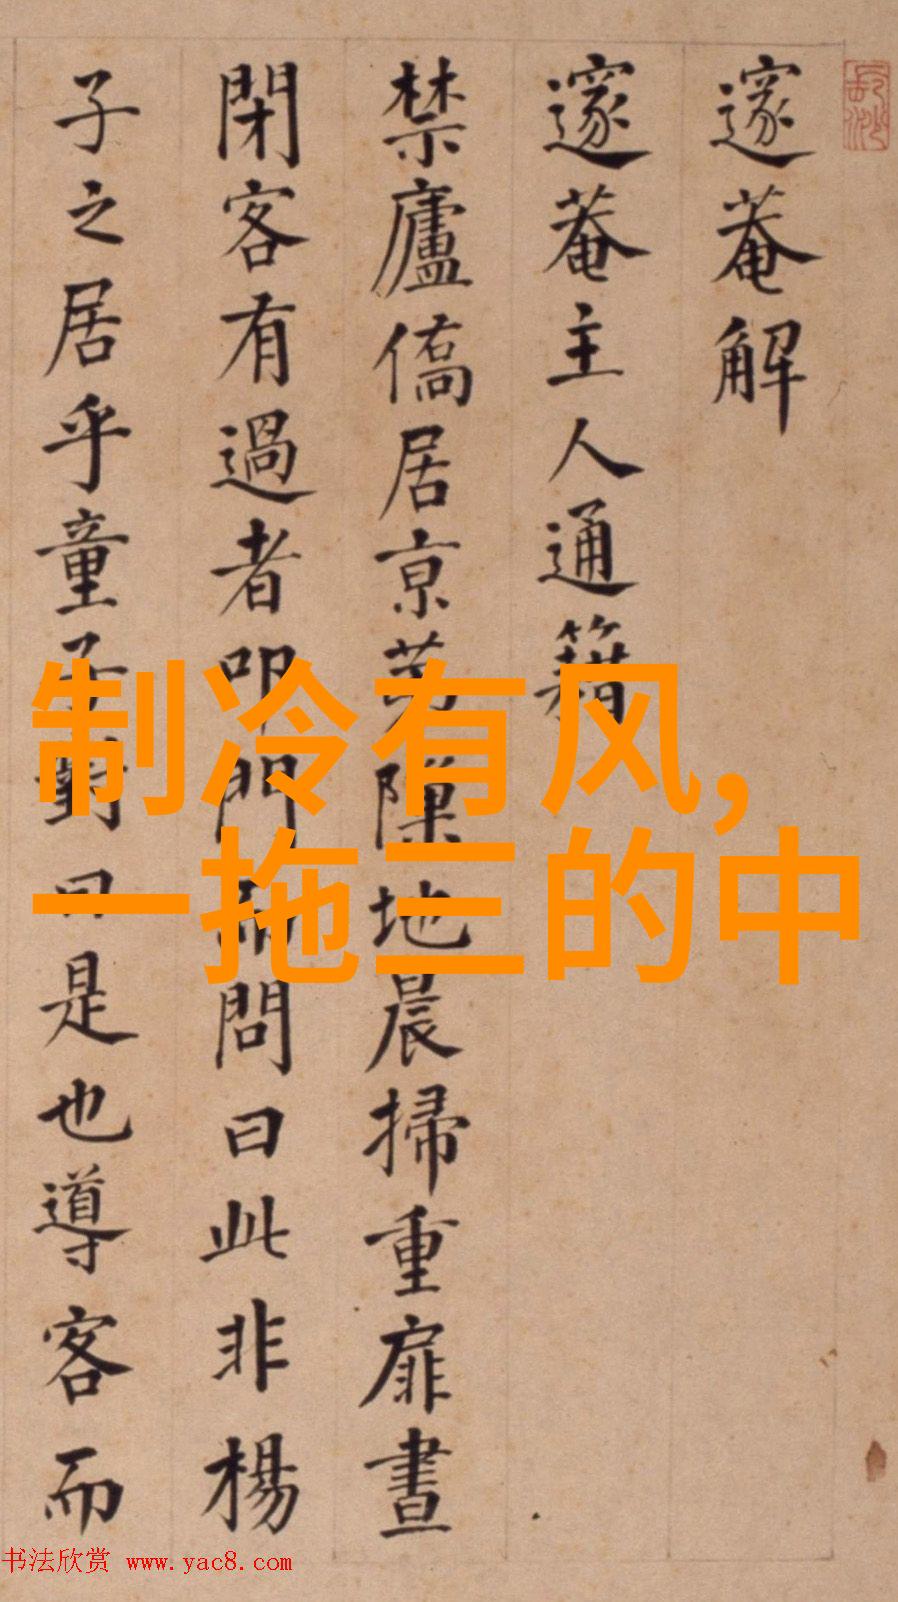 邃菴解
邃菴主人通籍
禁廬僑居京芳隟地晨掃重扉晝
閉客有過者叩門而問曰此非楊
子之居乎童子對曰是也導客而
制冷有风，
一拖三的中
书法欣赏 www.yac8.com